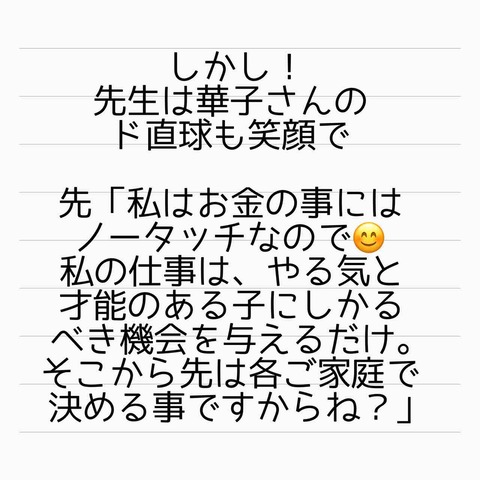 しかし！
先生は華子さんの
ド直球も笑顔で
先「私はお金の事には
ノータッチなので😊
私の仕事は、やる気と
才能のある子にしかる
べき機会を与えるだけ。
そこから先は各ご家庭で
決める事ですからね？」